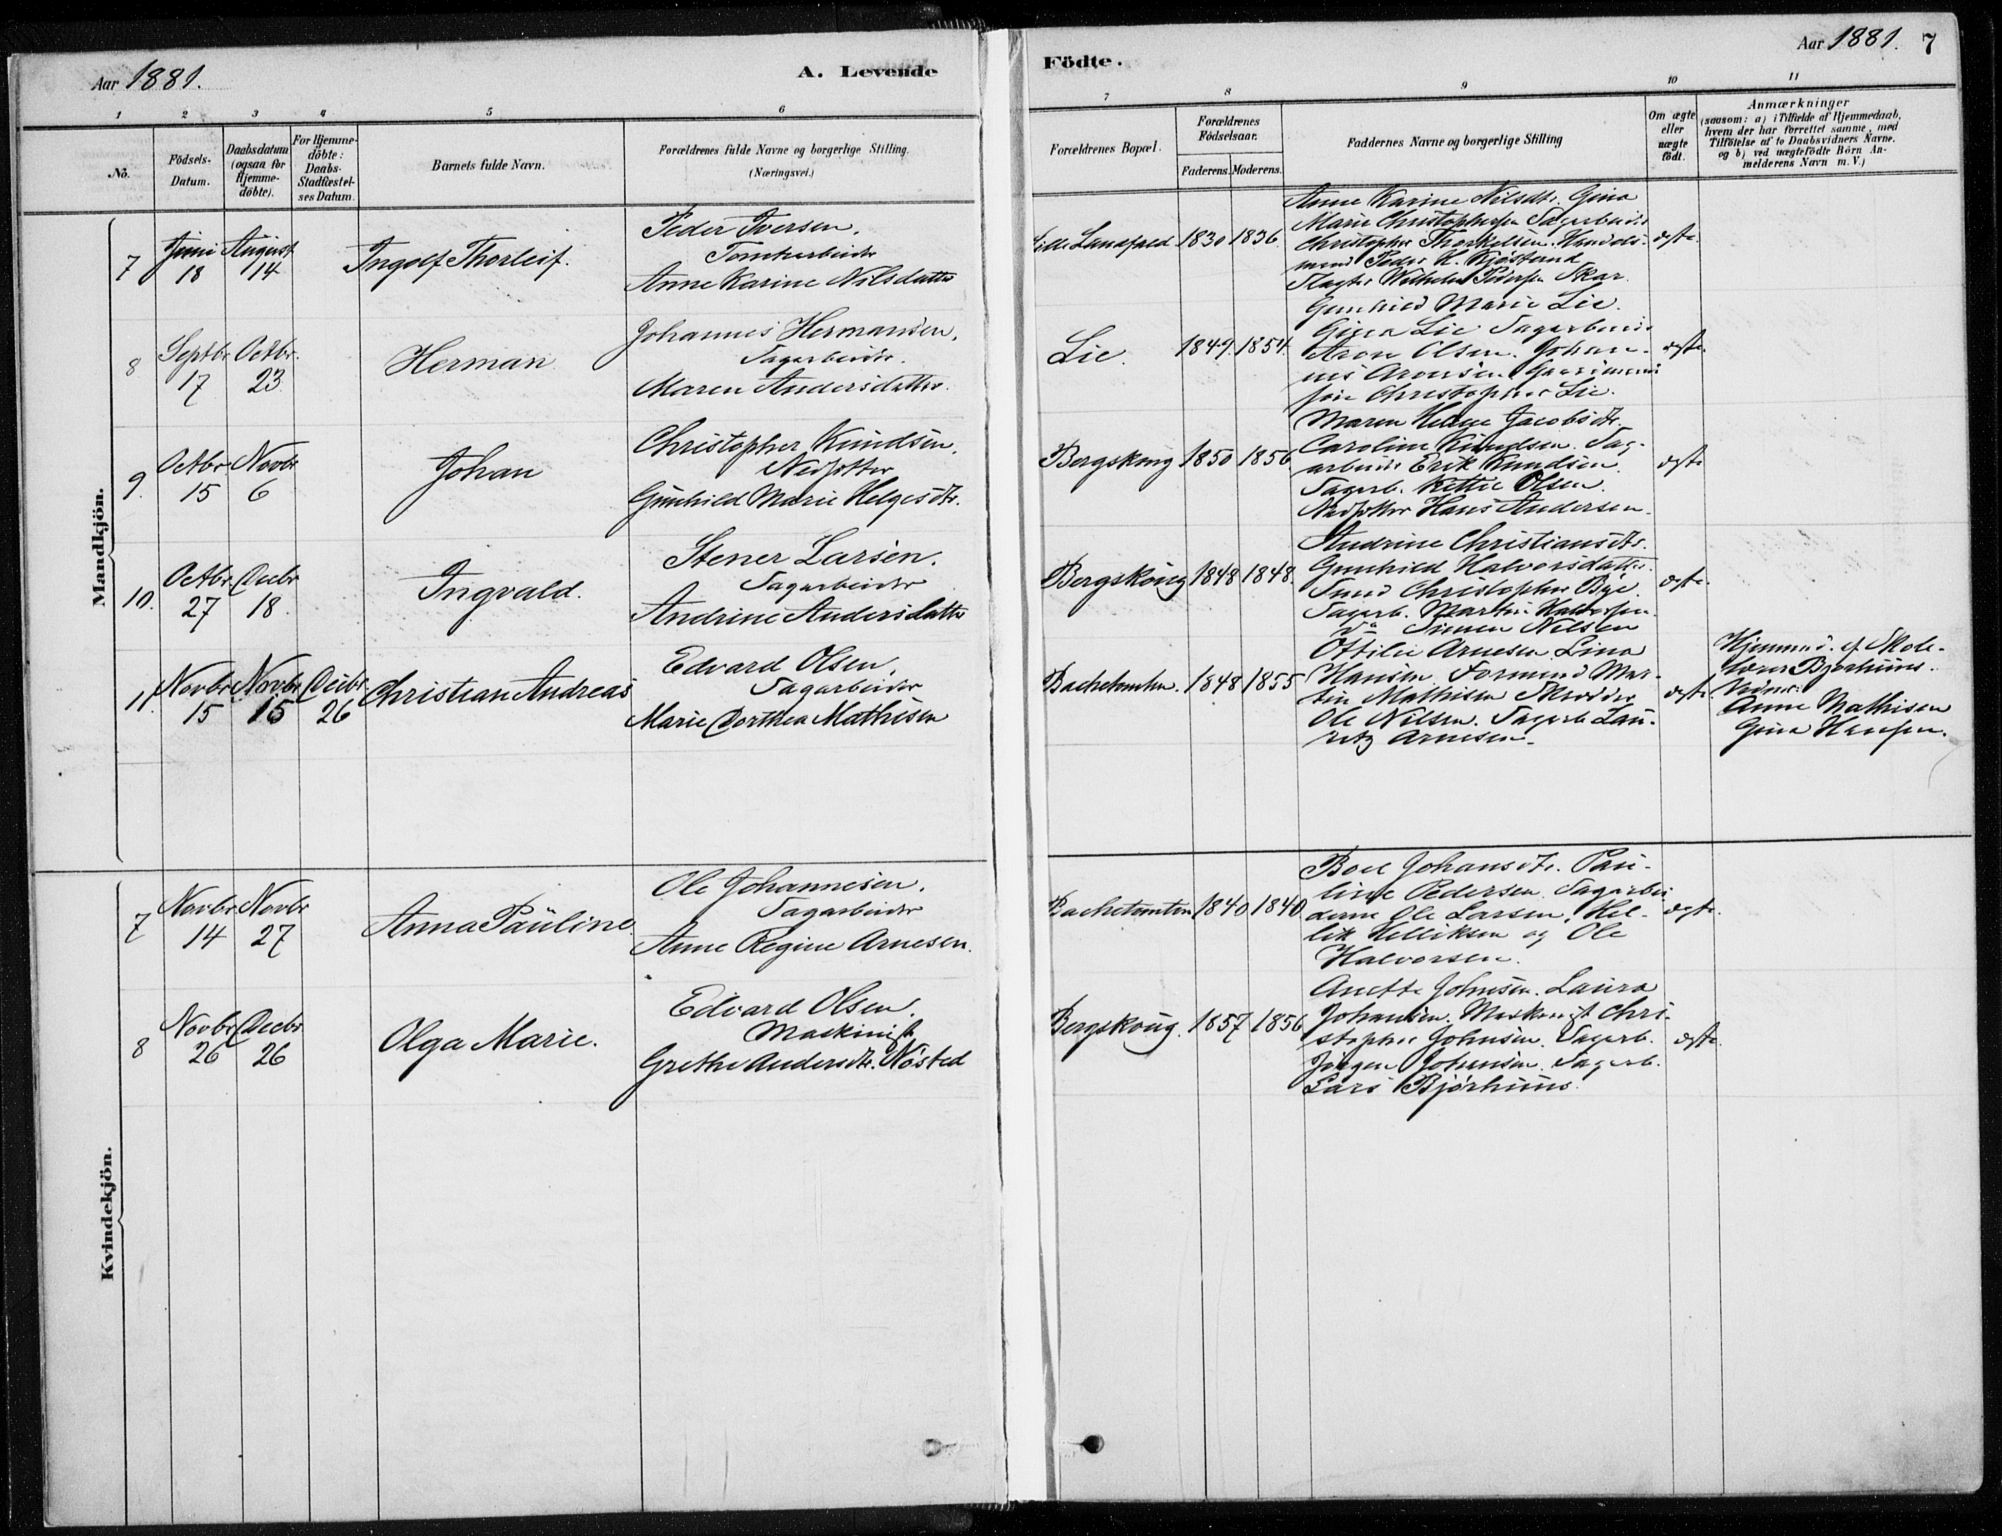 Aar 1881.
A. Levende
1 2 3 4 5 6
No.
Födsels-
Datum.
Daabsdatum
(ogsaa for
Hjemme-
döbte).
For Hjemme-
döbte:
Daabs-
Stadfæstel-
ses Datum.
Barnets fulde Navn.
Forældrenes fulde Navne og borgerlige Stilling.
(Næringsvei.)
Mandkjön.
7 Juni 18 August 14 Ingolf Thorleif.
Peder Iversen.
Tomtearbeider
Anne Karine Nilsdatter
8 Septbr 17 Octbr. 23 Herman
Johannes Hermansen.
Sagarbeider.
Maren Andersdatter.
9. Octbr 15 Novbr 6 Johan
Christopher Knudsen.
Gunhild Marie Helgesdtr.
10. Octbr 27 Decbr 18. Ingvald.
Stener Larsen.
Sagarbeider
Andrine Andersdatter
11. Novbr 15 Novbr 15 Decbr 26 Christian Andreas
Edvard Olsen.
Sagarbeider
Marie Dorthea Mathisen
Kvindekjön.
7 Novbr 14 Novbr 27 Anna Pauline
Ole Johannesen.
Sagarbeider
Anne Regine Arnesen.
8 Novbr 26 Decbr 26 Olga Marie.
Edvard Olsen.
Maskinist
Grethe Andersdtr. Nøsted
Födte.
Aar 1881. 7
7 8 9 10 11
Forældrenes Bopæl.
Forældrenes
Födselsaar.
Faderens. Moderens.
Faddernes Navne og borgerlige Stilling
Om ægte
eller
uægte
födt.
Anmærkninger
(saasom: a) i Tilfælde af Hjemmedaab,
hvem der har forrettet samme, med
Tilföielse af to Daabsvidners Navne.
og b) ved uægtefödte Börn An-
melderens Navn m. V.)
Lille Landfald 1830 1836.
Anne Karine Nilsdtr. Gina
Marie Christophersen Sagarbeider
Christopher Thorkelsen. Handels-
mand Peder H. Kjøstad
Slagter Wilhelm Pedersen Skar.
ægte.
Lie. 1849. 1854.
Gunhild Marie Lie.
Gina Lie Sagarbeider
Aron Olsen. Johan-
nes Aronsen
Christopher Lie.
ægte.
Bergskoug 1850 1856
Maren Helene Jacobsdtr.
Caroline Knudsen. Sag-
arbeider Erik Knudsen.
Sagarb. Kittil Olsen.
Hans Andersen.
ægte
Bergskoug 1848 1848.
Andrine Christiansdtr.
Gunhild Halvorsdatter
Smed Christopher Bye.
Sagarb. Martin Halvorsen
do Simen Nilsen
ægte.
Bachetomten. 1848 1855
Ottilie Arnesen. Lina
Hansen. Formand Mar-
tin Mathisen Skrædder
Ole Nilsen. Sagarb. Lau-
ritz Arnesen.
ægte.
Hjemmed. af Skole-
lærer Bjørhuus.
Vidner:
Anne Mathisen
Gina Hansen.
Bachetomten 1840 1840
Boel Johansdtr. Pau-
line Pedersen. Sagarbei-
derne Ole Larsen, Hel-
lik Helliksen og Ole
Halvorsen.
ægte.
Bergskoug. 1857 1856
Anette Johnsen. Laura
Johansen. Maskinist Chri-
stopher Johnsen. Sagarb.
Jørgen Johnsen. Sagarb.
Lars Bjørhuus.
ægte.